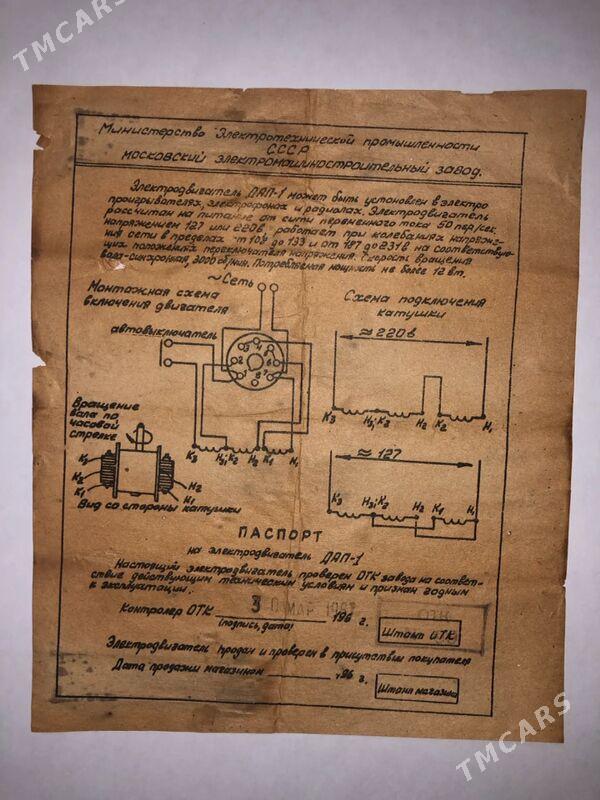 TMCARS
Министерство Электротехнической промышленности
СССР
московский электромашиностроительный завод.
Электродвигатель ДАП-1 может быть установлен в электро
проигрывателях, электрофонах и радиолах. Электродвигатель
рассчитан на питание от сети переменного тока 50 пер/сек.
напряжением 127 или 220в. работает при колебаниях напряже-
ния сети в пределах от 108 до 133 и от 187 до 231в на соответствую-
щих положениях переключателя напряжения. Скорость вращения
вала-синхронная, 3000 об/мин. Потребляемая мощность не более 12 вт.
~Сеть
Монтажная схема
включения двигателя
Схема подключения
катушки
автовыключатель
≈220в
3 4 5
2 6
1 8 7
К3 Н3;К2 Н2 К1 Н1
К3 Н3;К2 Н2 К2 Н1
Вращение
вала по
часовой
стрелке
≈127
К3 Н3;К2 Н2 К1 Н1
К3
К2
К1
Н2
Н1
Вид со стороны катушки
ПАСПОРТ
на электродвигатель ДАП-1
Настоящий электродвигатель проверен ОТК завода на соответ-
ствие действующим техническим условиям и признан годным
к эксплуатации.
Контролер ОТК 3 МАР 196 г.
(подпись, дата)
ОТК
Штамп ОТК
Электродвигатель продан и проверен в присутствии покупателя
Дата продажи магазином 196 г.
Штамп магазина
TMCARS